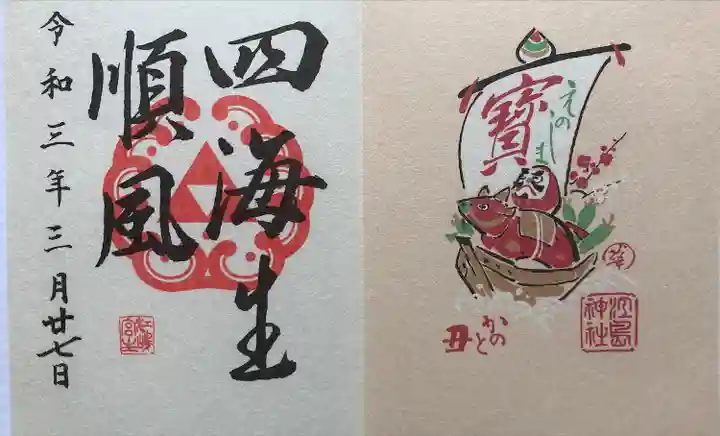 四海生
順風
令和三年三月廿七日
寶
えのしま
かのと
丑
江島
神社